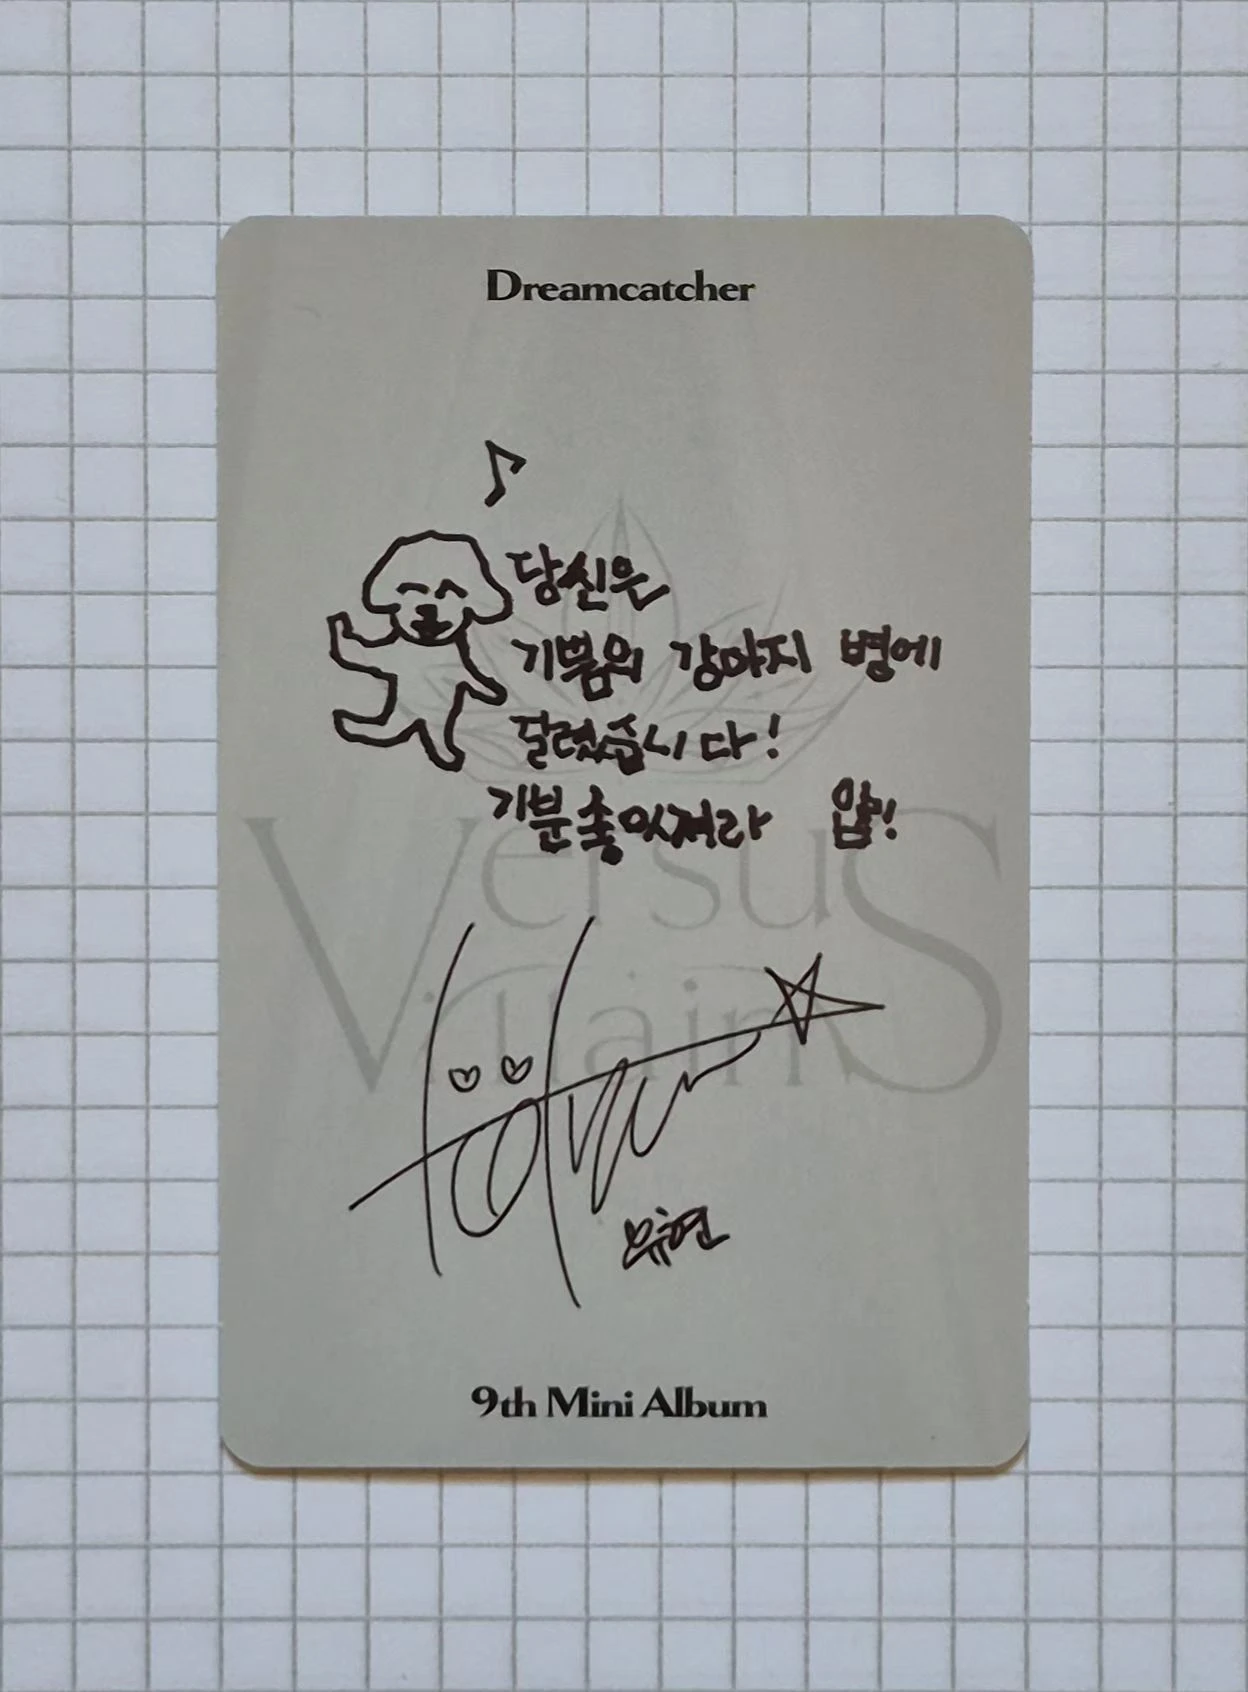 Dreamcatcher
당신은
기쁨의 강아지 병에
걸렸습니다!
기분좋아져라 얍!
Versus
Villains
유현
9th Mini Album